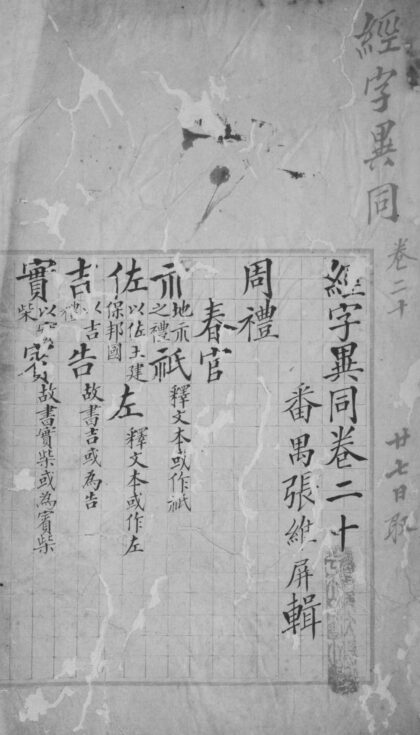 經字異同 卷二十 廿七日
經字異同卷二十
番禺張維屏輯
周禮
春官
示 地示之禮 祇 釋文本或作祇
佐 以佐王建保邦國 左 釋文本或作左
吉 以吉禮 告 故書吉或為告
實 以實柴 賓 故書實柴或為賓柴